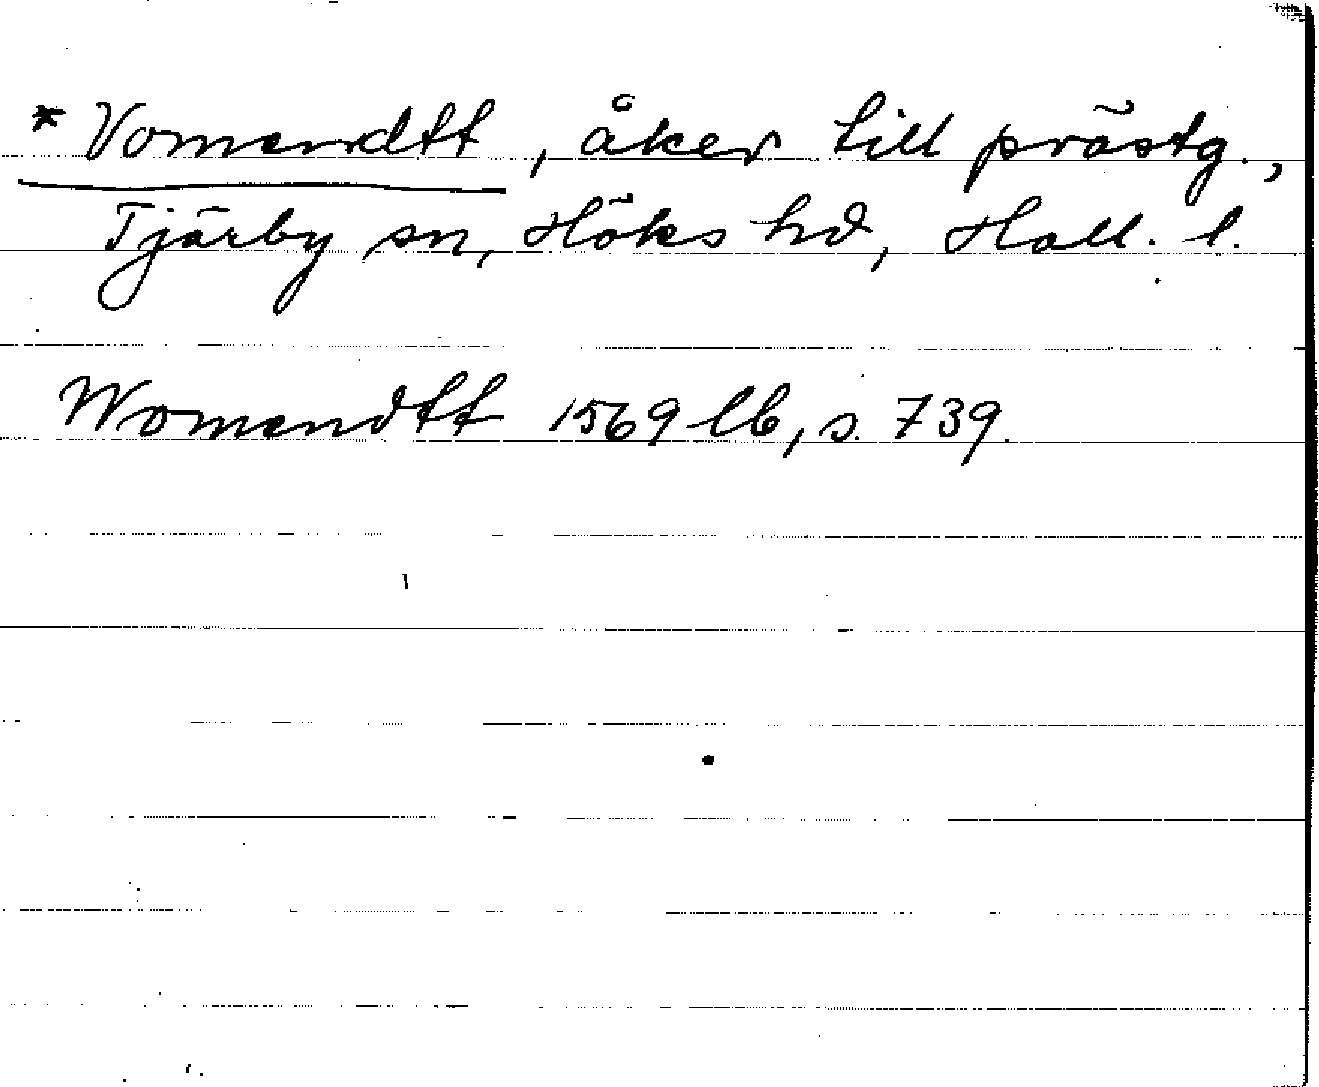 * Vomendtt, åker till prästg.,
Tjärby sn, Höks hd, Hall. l.
Womendtt 1569 lb, s. 739.